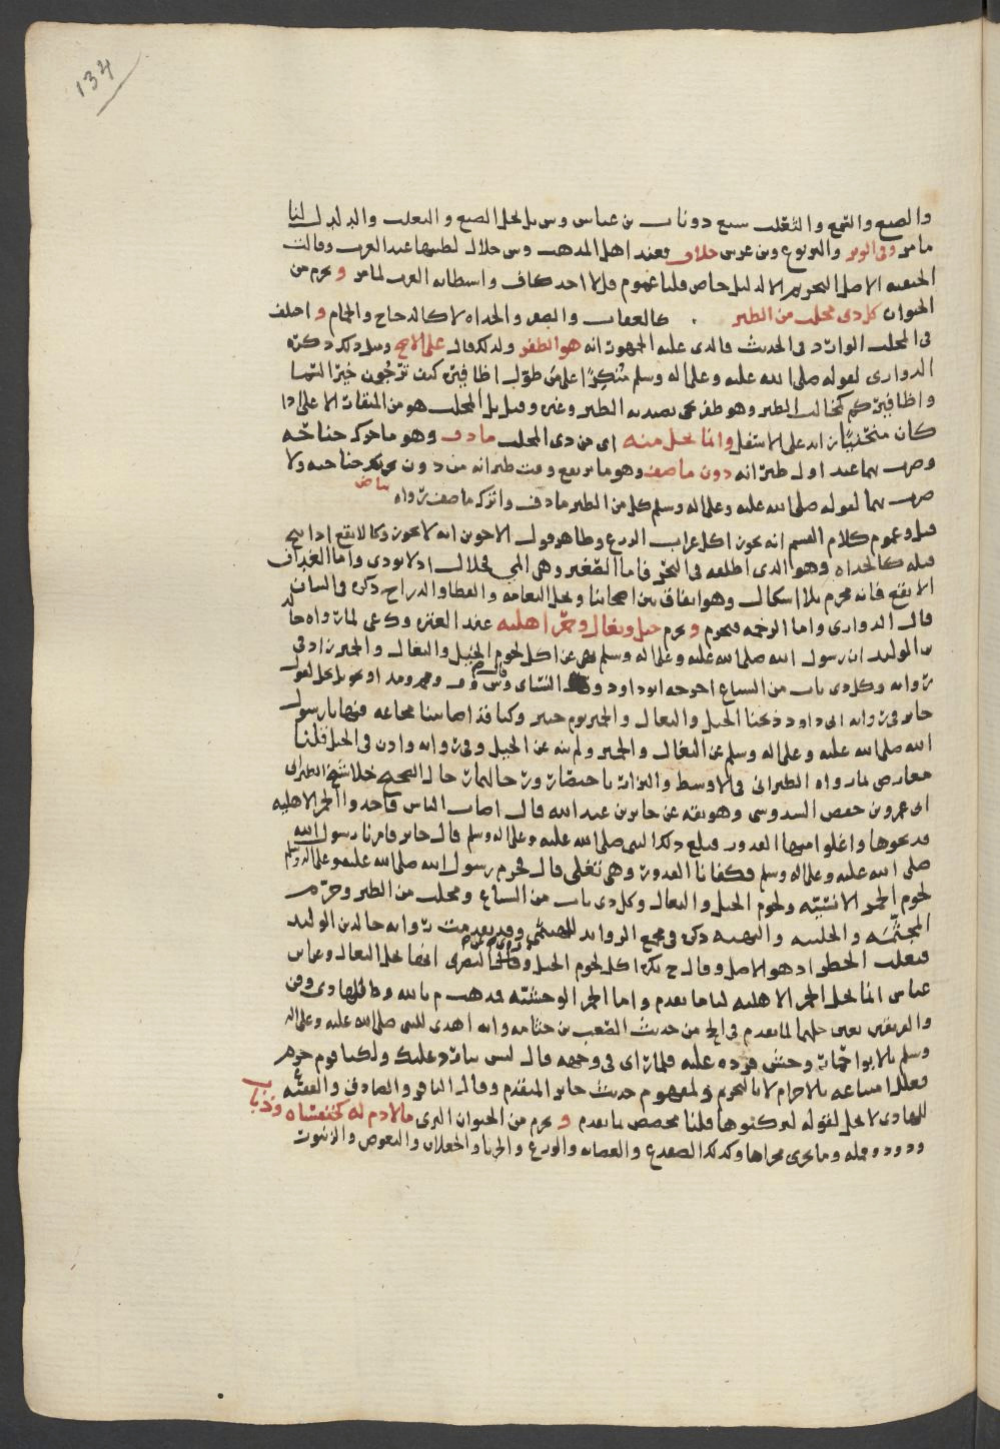 134
والضبع والقمع والثعلب سبع دوناب بن عباس وس بل لحل الضبع و الثعلب والدلدل لنا
ما مر وفي الوبر واليربوع وبن عرس خلاف فعند اهل المذهب وس حلال لطيبها عند العرب وقالت
الحنفيه الاصل التحريم الا لدليل خاص قلنا عموم قل لا احد كاف واستطابه العرب لما مر و يحرم من
الحيوان كل ذي مخلب من الطير كالعقاب والصقر والحداه لا كالدجاج والحمام و اختلف
في المخلب الوارد في الحديث فالذي عليه الجمهور انه هو الظفر ولذلك قال على الاصح وقيل ذلك ذكره
الدواري لقوله صلى الله عليه وعلى اله وسلم منكرًا على من طول اظافيره كيف ترجون خير السما
واظافيركم كمخالب الطير وهو ظفر يصيد به الطير وغيره وقيل بل المخلب هو من المنقار الا على اذا
كان منحنيًا زايد على الاسفل وانما يحل منه اي من ذي المخلب ما دف وهو ما حرك جناحيه
وضرب بهما عند اول طيرانه دون ما صف وهو ما يرتفع وقت طيرانه من دون تحريك جناحيه ولا
ضرب بهما لقوله صلى الله عليه وعلى اله وسلم كل من الطير ما دف واترك ما صف رواه بياض
قيل وعموم كلام القسم انه يجوز اكل غراب الزرع وظاهر قول الاخوين انه لا يجوز وكالابقع اذا ابيح
قتله كالحداه وهو الذي اطلقه في البحر فاما الصغير وهي فحلال اذ لا يوذي واما الغداف
الابقع فانه محرم بلا اشكال وهو اتفاق بين اصحابنا ويحل النعامه والقطا والدراج ذكره في البيان
قال الدواري واما الرخمه فتحرم و يحرم خيل وبغال وحمر اهليه عند العتره وك عى لما رواه خالد
بن الوليد ان رسول الله صلى الله عليه وعلى اله وسلم نهى عن اكل لحوم الخيل والبغال والحمير زاد في
روايه وكل ذي ناب من السباع اخرجه ابو داود و النساي وس وف يجوز بل يحل لقول
جابر في روايه ابي داود ذبحنا الخيل والبغال والحمير يوم خيبر وكنا قد اصابتنا مجاعه فنهانا رسول
الله صلى الله عليه وعلى اله وسلم عن البغال والحمير ولم ينه عن الخيل وفي روايه واذن في الخيل قلنا
معارض لما رواه الطبراني في الاوسط والبزار باختصار ورجالهما رجال الصحيح خلا شيخ الطبراني
اى عمرو بن حفص السدوسي وهو ثقه عن جابر بن عبد الله قال اصاب الناس فاخذوا الحمر الاهليه
فذبحوها واغلوا منها القدور فبلغ ذلك النبي صلى الله عليه وعلى اله وسلم قال جابر فامرنا رسول الله
صلى الله عليه وعلى اله وسلم فكفانا القدور وهي تغلي قال فحرم رسول الله صلى الله عليه وعلى اله وسلم
لحوم الحمر الانسيه ولحوم الخيل والبغال وكل ذي ناب من السباع ومخلب من الطير وحرم
المجثمه والخلسه والنهبه ذكره في مجمع الزوايد للهيثمي وقد تقدمت روايه خالد بن الوليد
فتغلب الحظر اذ هو الاصل وقال ح يكره اكل لحوم الخيل وقال الحسن البصري ايضا يحل البغال وعباس
عباس انما يحل الحمر الاهليه لنا ما تقدم واما الحمر الوحشيه فذهب م بالله وط للهادى وفن
والفريقين يعني حلها لما تقدم في الحج من حديث الصعب بن جثامه وانه اهدى للنبي صلى الله عليه وعلى اله
وسلم بالابوا حمار وحش فرده عليه فلما راى في وجهه قال ليس بنا رد عليك ولكنا قوم حرم
فعلل امتناعه بالاحرام لا بالتحريم ولمفهوم حديث جابر المتقدم وقال الناصر والصادق والفقيه ع
للهادي لا يحل لقوله لتركبوها قلنا مخصص بما تقدم و يحرم من الحيوان البري ما لا دم له كخنفساه وذباب
ودود وقمله وما يجرى مجراها وكذلك الضفدع والعضايه والوزغ والحربا والجعلان والبعوض والزنبور